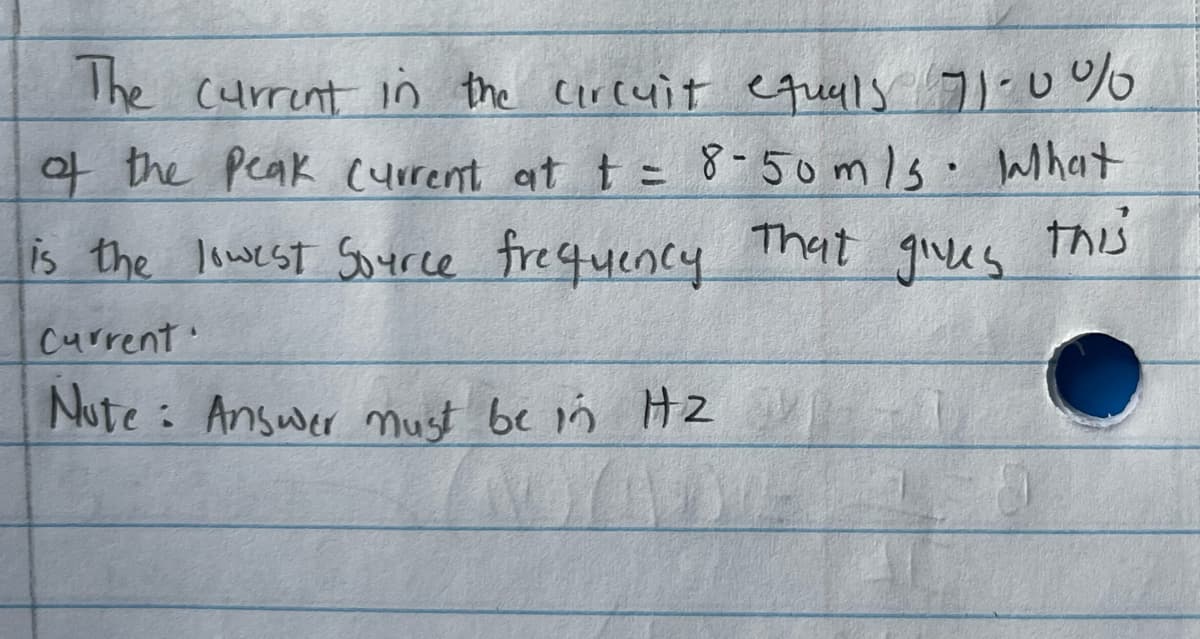 The current in the circuit equals 71.0%
of the Peak current at t = 8.50 m/s. What
is the lowest Source frequency that gives this
current.
Note: Answer must be in Hz